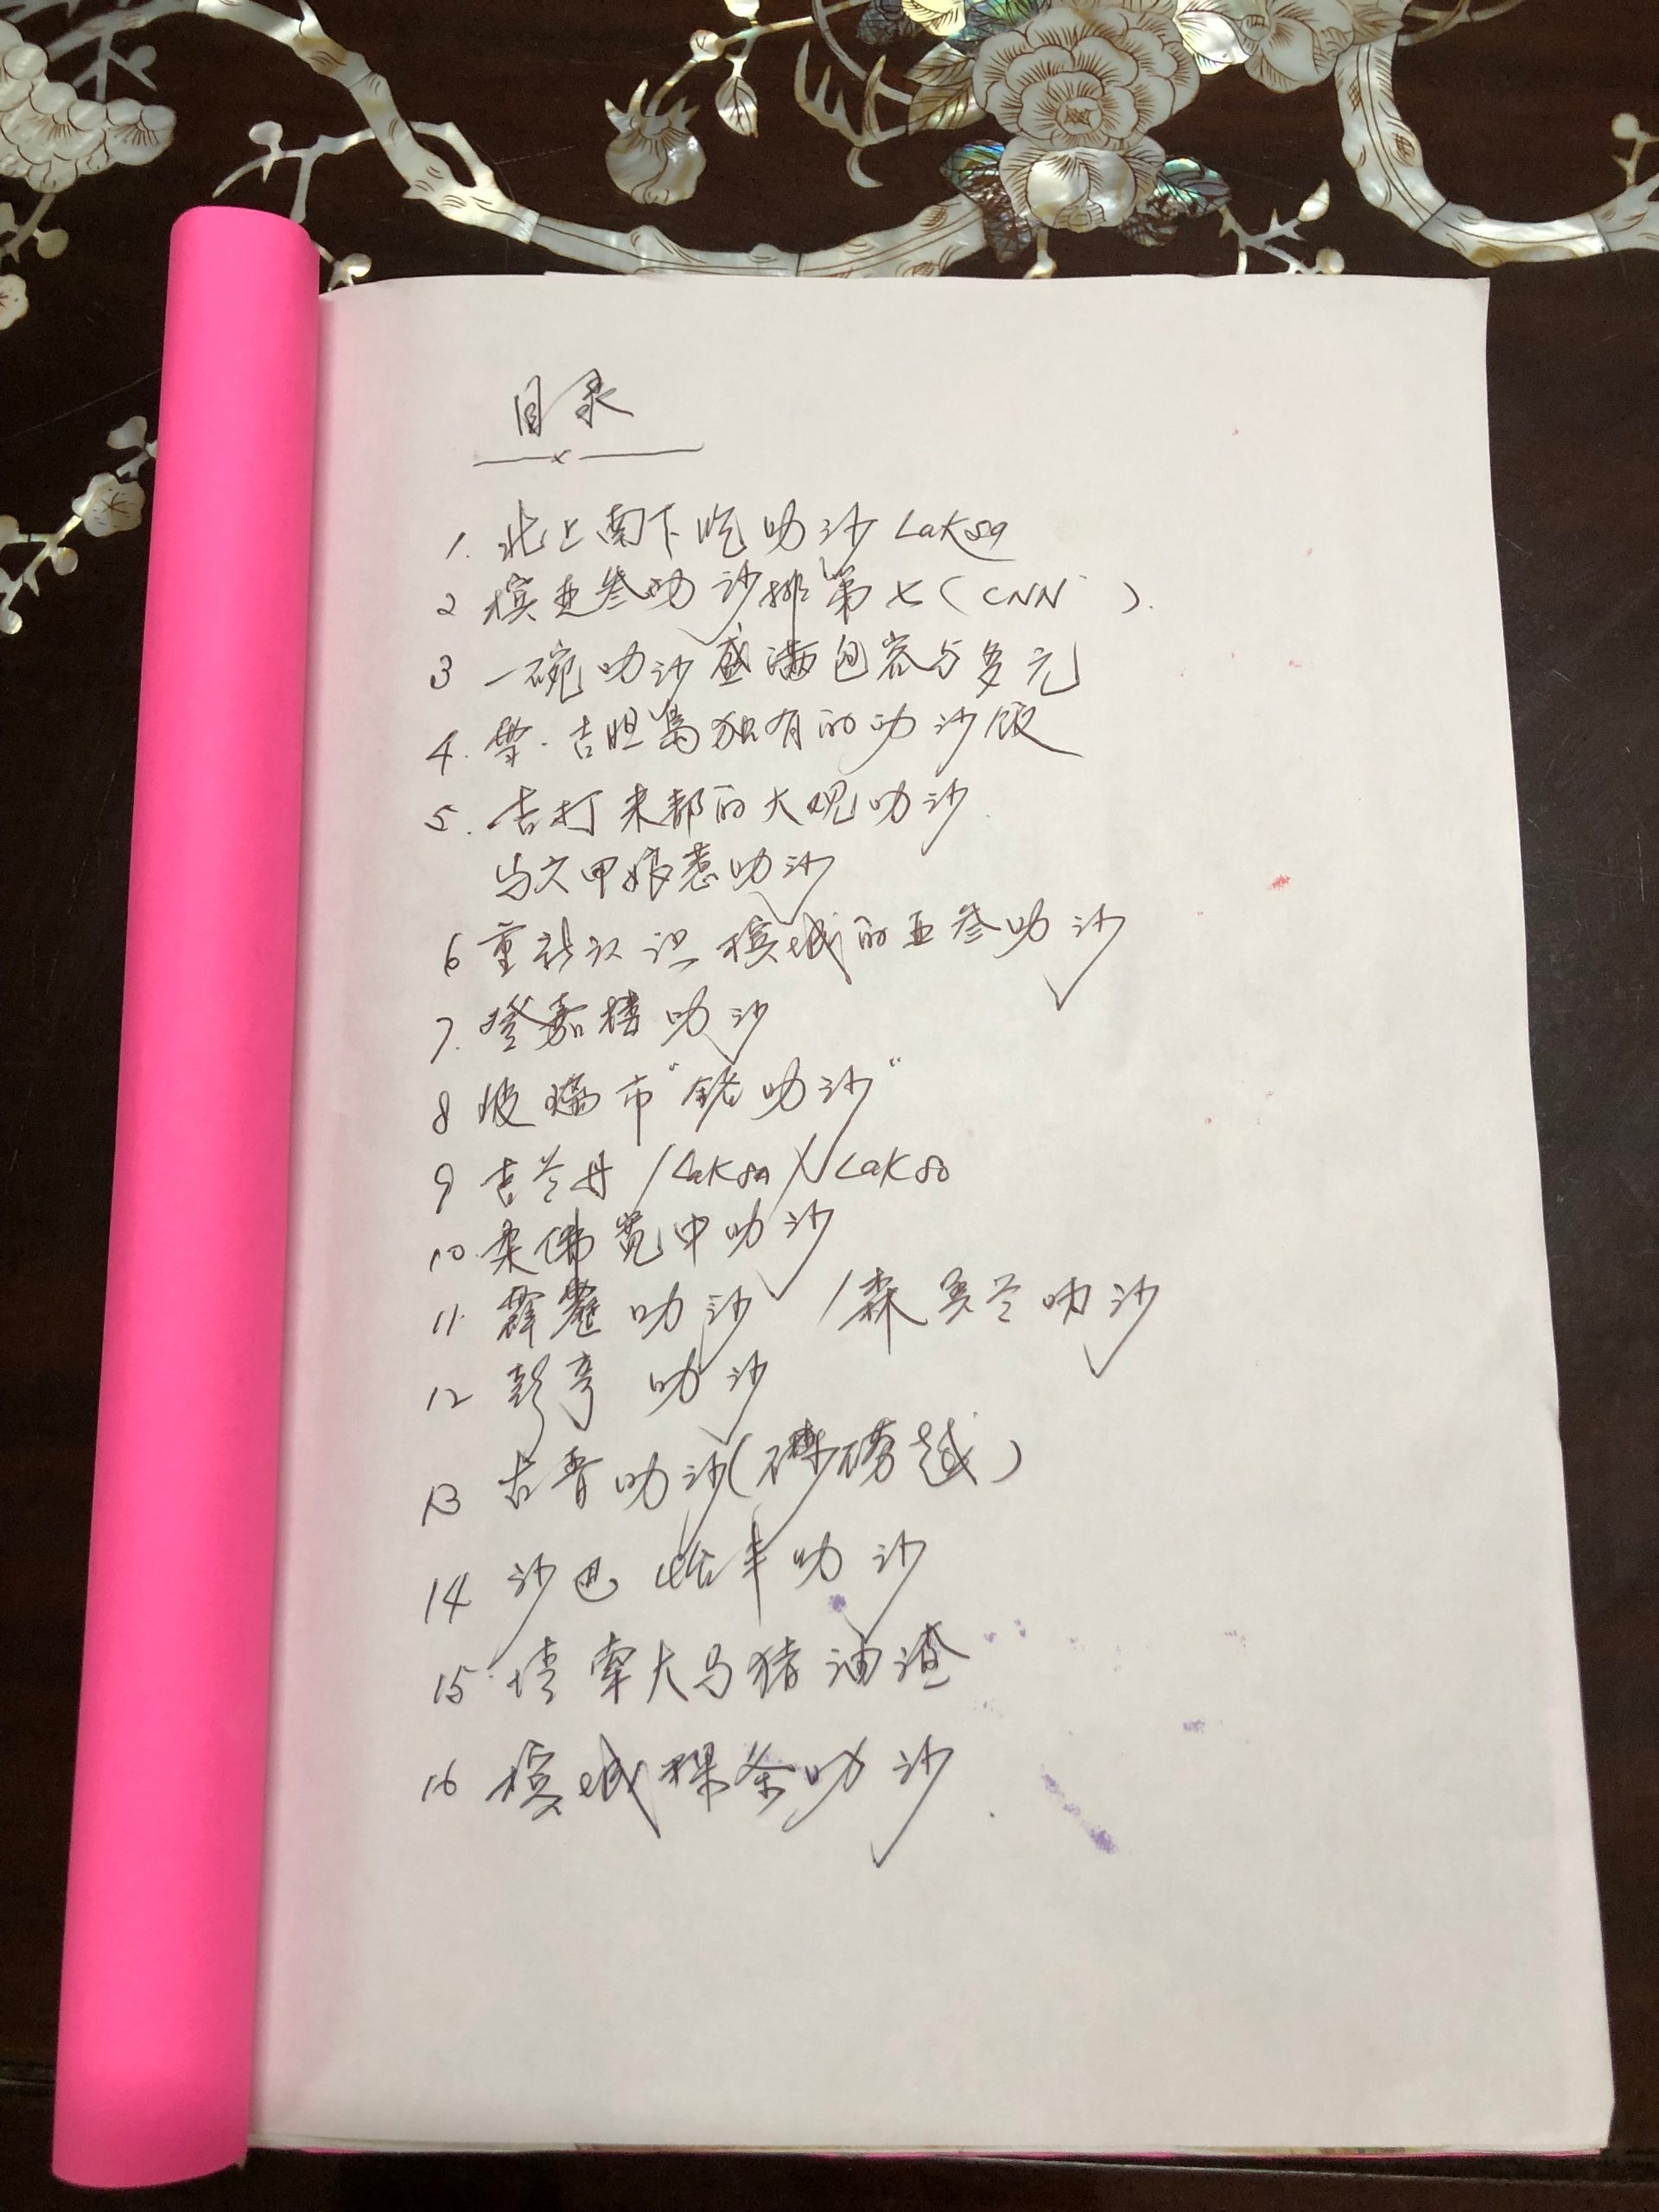 目录
1. 北上南下吃叻沙 Laksa
2 槟亚叁叻沙排第七(CNN).
3 一碗叻沙盛满包容与多元
4. 雪.吉胆岛独有的叻沙饭
5. 吉打末都的大observed叻沙
马六甲娘惹叻沙
6 重新认识槟城的亚叁叻沙
7. 登嘉楼叻沙
8 玻璃市"铭叻沙"
9 吉兰丹/Laksa/Lakso
10. 柔佛宽中叻沙
11. 霹雳叻沙 /森美兰叻沙
12 彭亨叻沙
13 古晋叻沙(砂磅越)
14 沙巴 叻沙
15. 大马猪油渣
16 槟城粿条叻沙